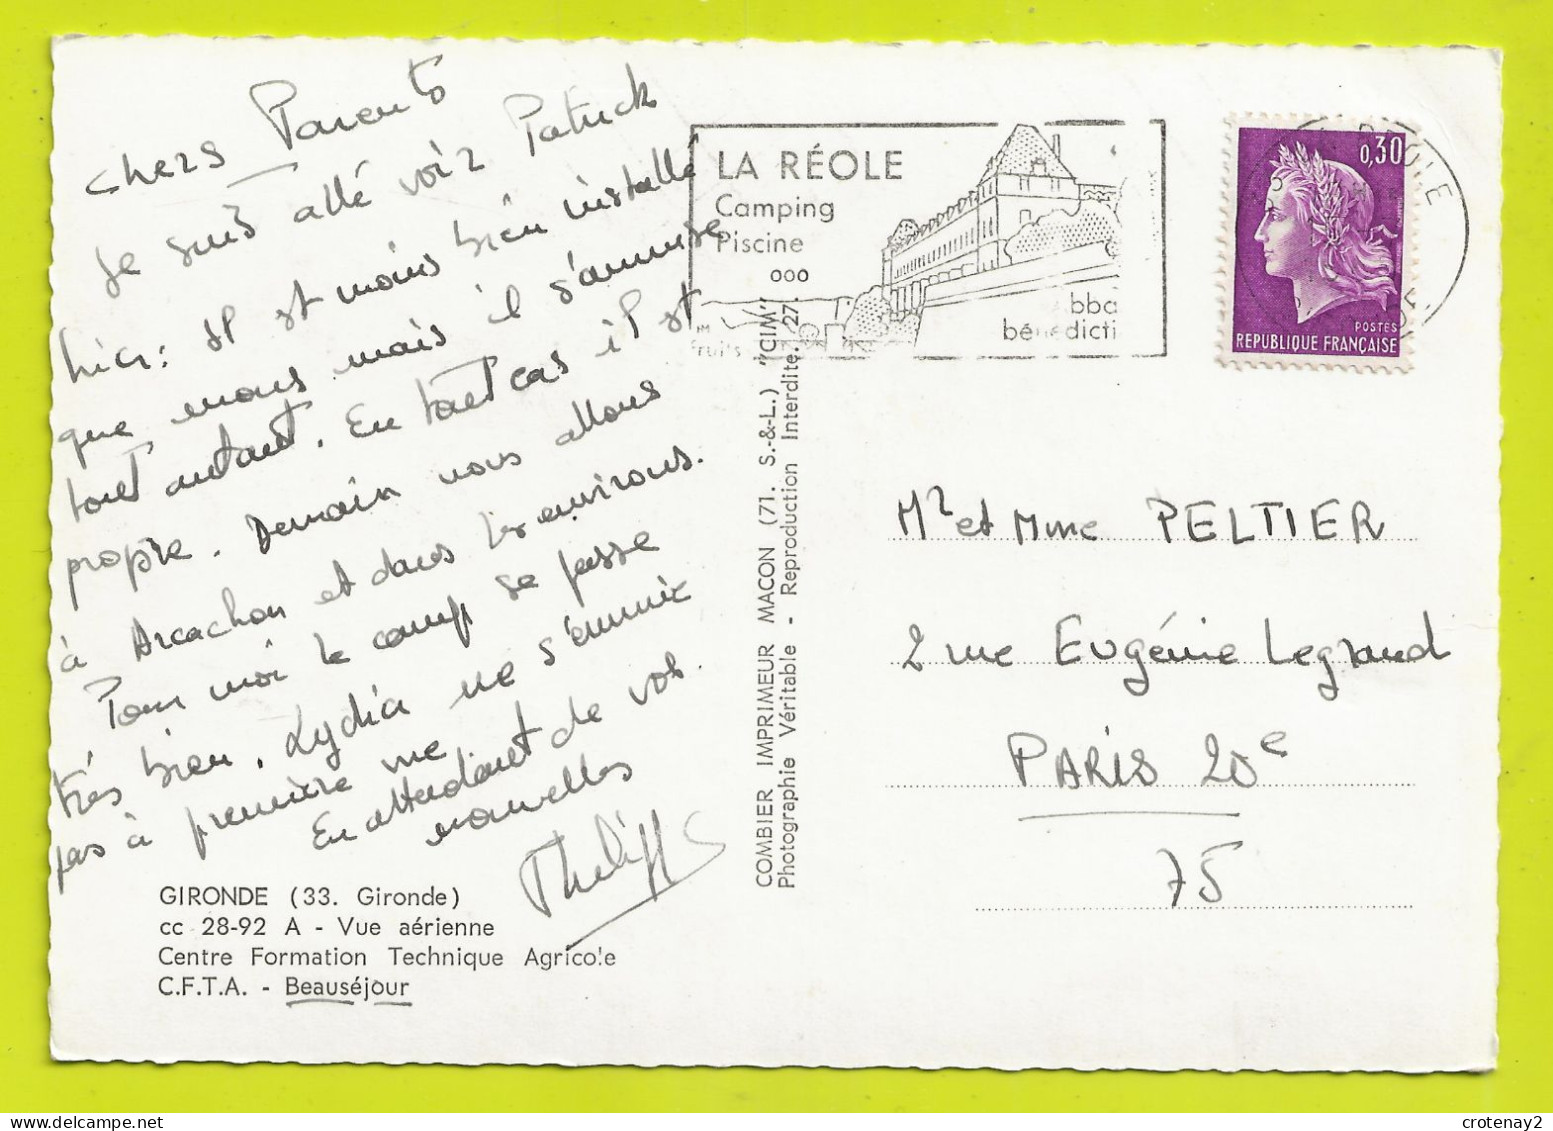 Chers Parents
Je suis allé voir Patrick
hier: Il est moins bien installé
que nous mais il s'amuse
tout autant. En tout cas il est
propre. Demain nous allons
à Arcachon et dans les environs.
Pour moi le camp se passe
très bien. Lydia ne s'ennuie
pas à première vue
En attendant de vos
nouvelles
Philippe
GIRONDE (33. Gironde)
cc 28-92 A - Vue aérienne
Centre Formation Technique Agricole
C.F.T.A. - Beauséjour
COMBIER IMPRIMEUR MACON (71. S.-&-L.) "CIM"
Photographie Véritable - Reproduction Interdite. 27.
LA RÉOLE
Camping
Piscine
ooo
bba
bénédicti
fruits
0,30
POSTES
REPUBLIQUE FRANÇAISE
Mr et Mme PELTIER
2 rue Eugénie Legrand
PARIS 20e
75
crotenay2